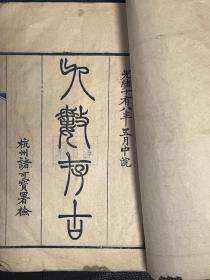 光緒十有八年 五月中浣
九數存古
杭州諸可寶署檢